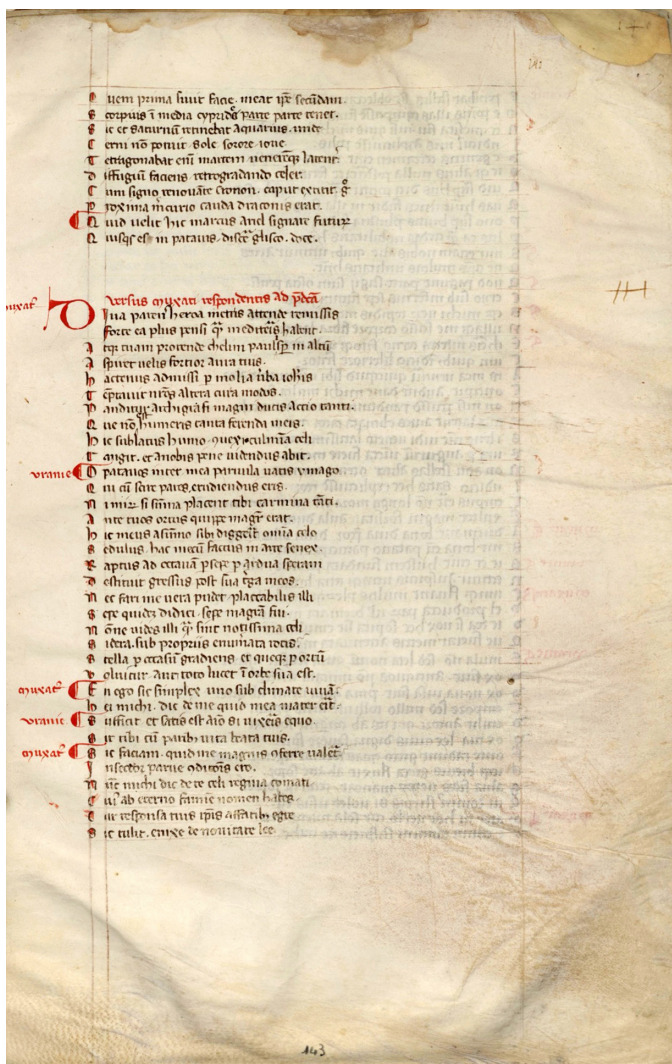 Q uem prima fuit facie. meat ipse secundam.
S corpius i media cypridos parte parte tenet.
S ic et saturnum retinebat aquarius. unde
C erni non potuit. sole. sorore. ioue
T etragonabat eni martem uenerisque
D iffugium faciens. retrogradando celer.
C um signo renouante caput
P roxima mercurio cauda draconis erat.
Q uid uelit hic marcus ariel signate
Q uisquis es in patauis. glisco. doce.
muxat
Versus muxati respondentis ad
D iua metris attende remissis
forte ea plus pensi que mediteris habent.
A t tu iam protende chelim paulisper in altum
A spiret uelis fortior aura tuis.
H actenus admissi per molia uerba iohannis
T emptauit nostros altera cura modos.
P anditur magni ducis actio tanti.
Q ue non humeris canta ferenda meis.
H ic sublatus humo culmina celi
T angit. et a nobis pene uidendus abit.
uranie
O patauos inter mea paruula uatis ymago
Q ui cum scire pares. erudiendus eris.
N imirum si summa placent tibi carmina tanti.
A nte tuos ortus quippe magister erat.
H ic meus asinino sibi omnia celo
S edulus. hac mecum factus in arte senex.
R aptus ad octauam persepe per ardua speram
D estituit gressus post sua terga meos.
N ec fari me uera pudet. placabilis illi
S epe quidem didici. sepe magistra fui.
N onne uides illi que sint notissima celi
S idera. sub propriis enumerata locis.
S tella per occasum gradiens. et queque per ortum
V oluitur. aut toto lucet in orbe sua est.
muxat
E n ego sic simplex uno sub climate uiuam.
H ei michi. dic de me quid mea mater erit.
uranie
S ufficit. et satis est aio si uixeris equo
S it tibi cum paribus uita beata tuis.
muxat
S ic faciam. quid me magnis offerre ualeret
I nsector parue conditionis ero.
N unc michi dic de te celi regina
C ur ab eterno nomen habes.
C ur responsa tuis ipsis affatibus egre
S ic tulit. enixe de nouitate
143